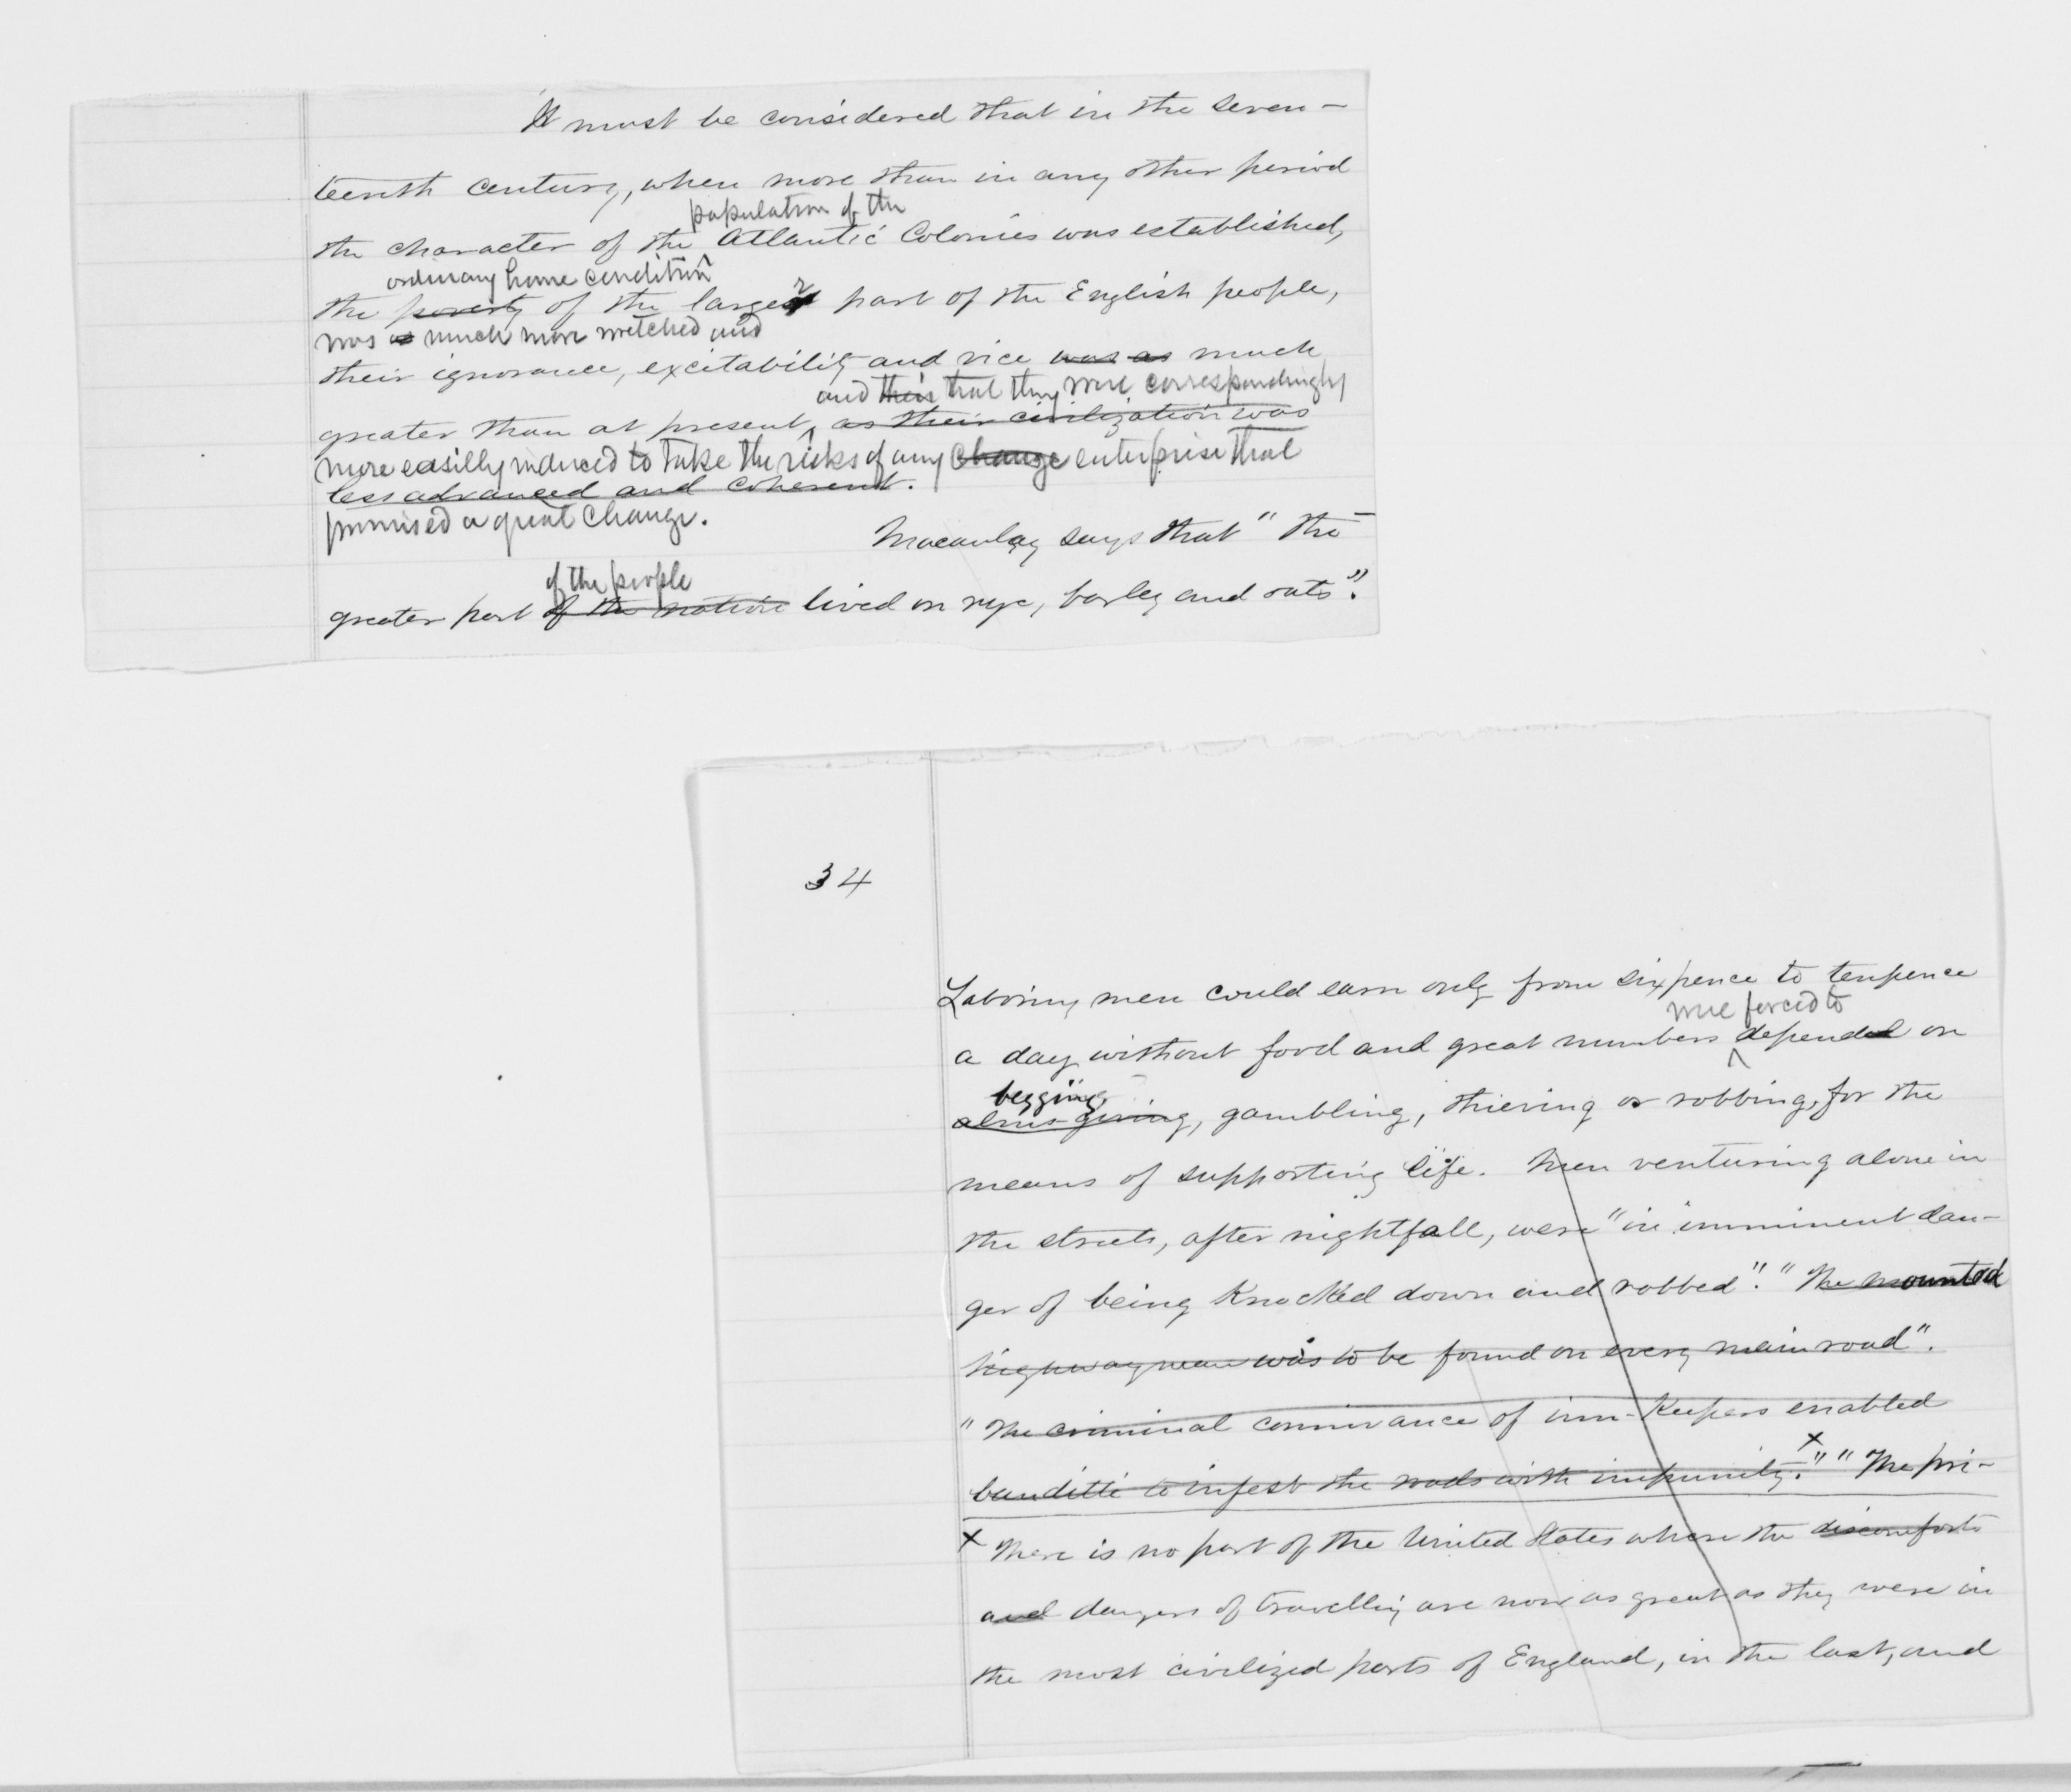 It must be considered that in the seven-
teenth century, when more than in any other period
population of the
the character of the Atlantic Colonies was established,
ordinary home condition
the poverty of the larger part of the English people,
was as much more wretched and
their ignorance, excitability and vice was as much
and their that they were correspondingly
greater than at present, as their civilization was
more easilly induced to take the risks of any change enterprise that
less advanced and coherent.
promised a great change.
Macaulay says that "the
of the people
greater part of the nation lived on rye, barley and oats".
34
Laboring men could earn only from sixpence to tenpence
were forced to
a day without food and great numbers depended on
begging
alms-giving, gambling, thieving or robbing, for the
means of supporting life. Men venturing alone in
the streets, after nightfall, were "in imminent dan-
ger of being knocked down and robbed". "The mounted
highwayman was to be found on every main road".
"The criminal connivance of inn-keepers enabled
banditti to infest the roads with impunity.x" "The pri-
x There is no part of the United States where the discomforts
and dangers of travelling are now as great as they were in
the most civilized parts of England, in the last, and